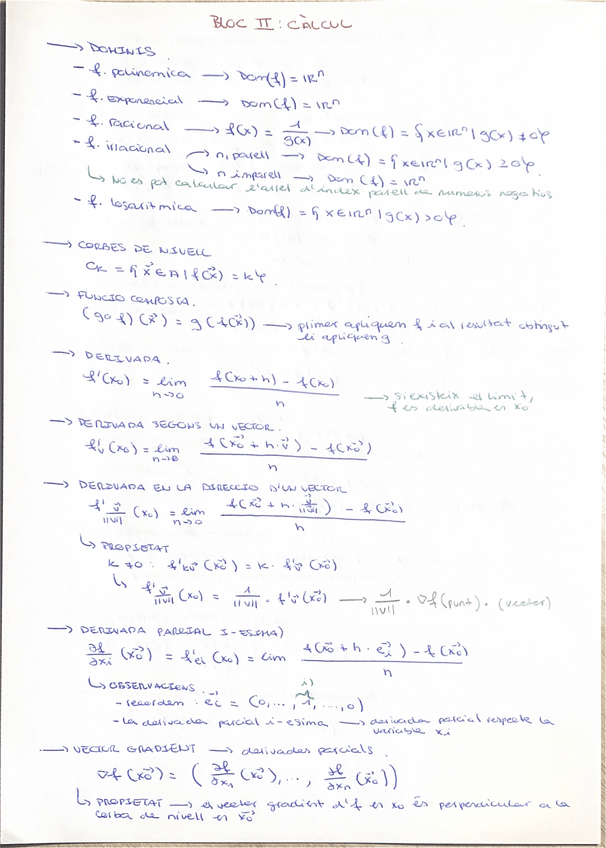 BLOC II: CÀLCUL
→ DOMINIS
- f. polinomica → Dom(f) = IRⁿ
- f. exponencial → Dom(f) = IRⁿ
- f. racional → f(x) = 1/g(x) → Dom(f) = {x∈IRⁿ | g(x) ≠ 0}
- f. irracional → n, parell → Dom(f) = {x∈IRⁿ | g(x) ≥ 0}
→ n imparell → Dom(f) = IRⁿ
↳ No es pot calcular l'arrel d'index parell de numeros negatius
- f. logaritmica → Dom(f) = {x∈IRⁿ | g(x) > 0}
→ CORBES DE NIVELL
Cₖ = {x⃗ ∈ A | f(x⃗) = k}
→ FUNCIO COMPOSTA.
(g o f)(x⃗) = g(f(x⃗)) → primer apliquem f i al resultat obtingut
li apliquem g.
→ DERIVADA.
f'(x₀) = lim h→0 (f(x₀+h) - f(x₀))/h → si existeix el limit,
f es derivable en x₀
→ DERIVADA SEGONS UN VECTOR.
f'v⃗ (x₀) = lim h→0 (f(x⃗₀ + h·v⃗) - f(x⃗₀))/h
→ DERIVADA EN LA DIRECCIO D'UN VECTOR
f' v⃗/||v|| (x₀) = lim h→0 (f(x⃗₀ + h· v⃗/||v||) - f(x⃗₀))/h
↳ PROPIETAT
k ≠ 0 : f'kv⃗ (x⃗₀) = k · f'v⃗ (x⃗₀)
↳ f' v⃗/||v|| (x₀) = 1/||v|| · f'v⃗ (x⃗₀) → 1/||v|| · ∇f(punt) · (vector)
→ DERIVADA PARCIAL I-ESIMA)
∂f/∂xᵢ (x⃗₀) = f'eᵢ (x₀) = lim (f(x⃗₀ + h · e⃗ᵢ) - f(x⃗₀))/h
↳ OBSERVACIONS.
i)
- recordem : e⃗ᵢ = (0,..., 1, ..., 0)
- la derivada parcial i-esima → derivada parcial respecte la
variable xᵢ
→ VECTOR GRADIENT → derivades parcials.
∇f(x⃗₀) = (∂f/∂x₁ (x⃗₀), ..., ∂f/∂xₙ (x⃗₀))
↳ PROPIETAT → el vector gradient d'f en x₀ és perpendicular a la
corba de nivell en x⃗₀